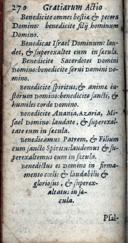 270 Gratiarum Actio
Benedicite omnes bestiæ & pecora
Domino: benedicite filij hominum
Domino.
Benedicat Israel Dominum: laudet,
& superexaltet eum in sæcula.
Benedicite Sacerdotes Domini
Domino: benedicite serui Domini Domino.
Benedicite spiritus, & animæ iustorum
Domino: benedicite sancti, &
humiles corde Domino.
Benedicite Anania, Azaria, Misael
Domino: laudate, & superexaltate
eum in sæcula.
Benedicamus Patrem, & Filium
cum sancto Spiritu: laudemus &
superexaltemus eum in sæcula.
Benedictus es Domine in firmamento
cæli: & laudabilis &
gloriosus, & superexaltatus
in sæcula.
Psal-